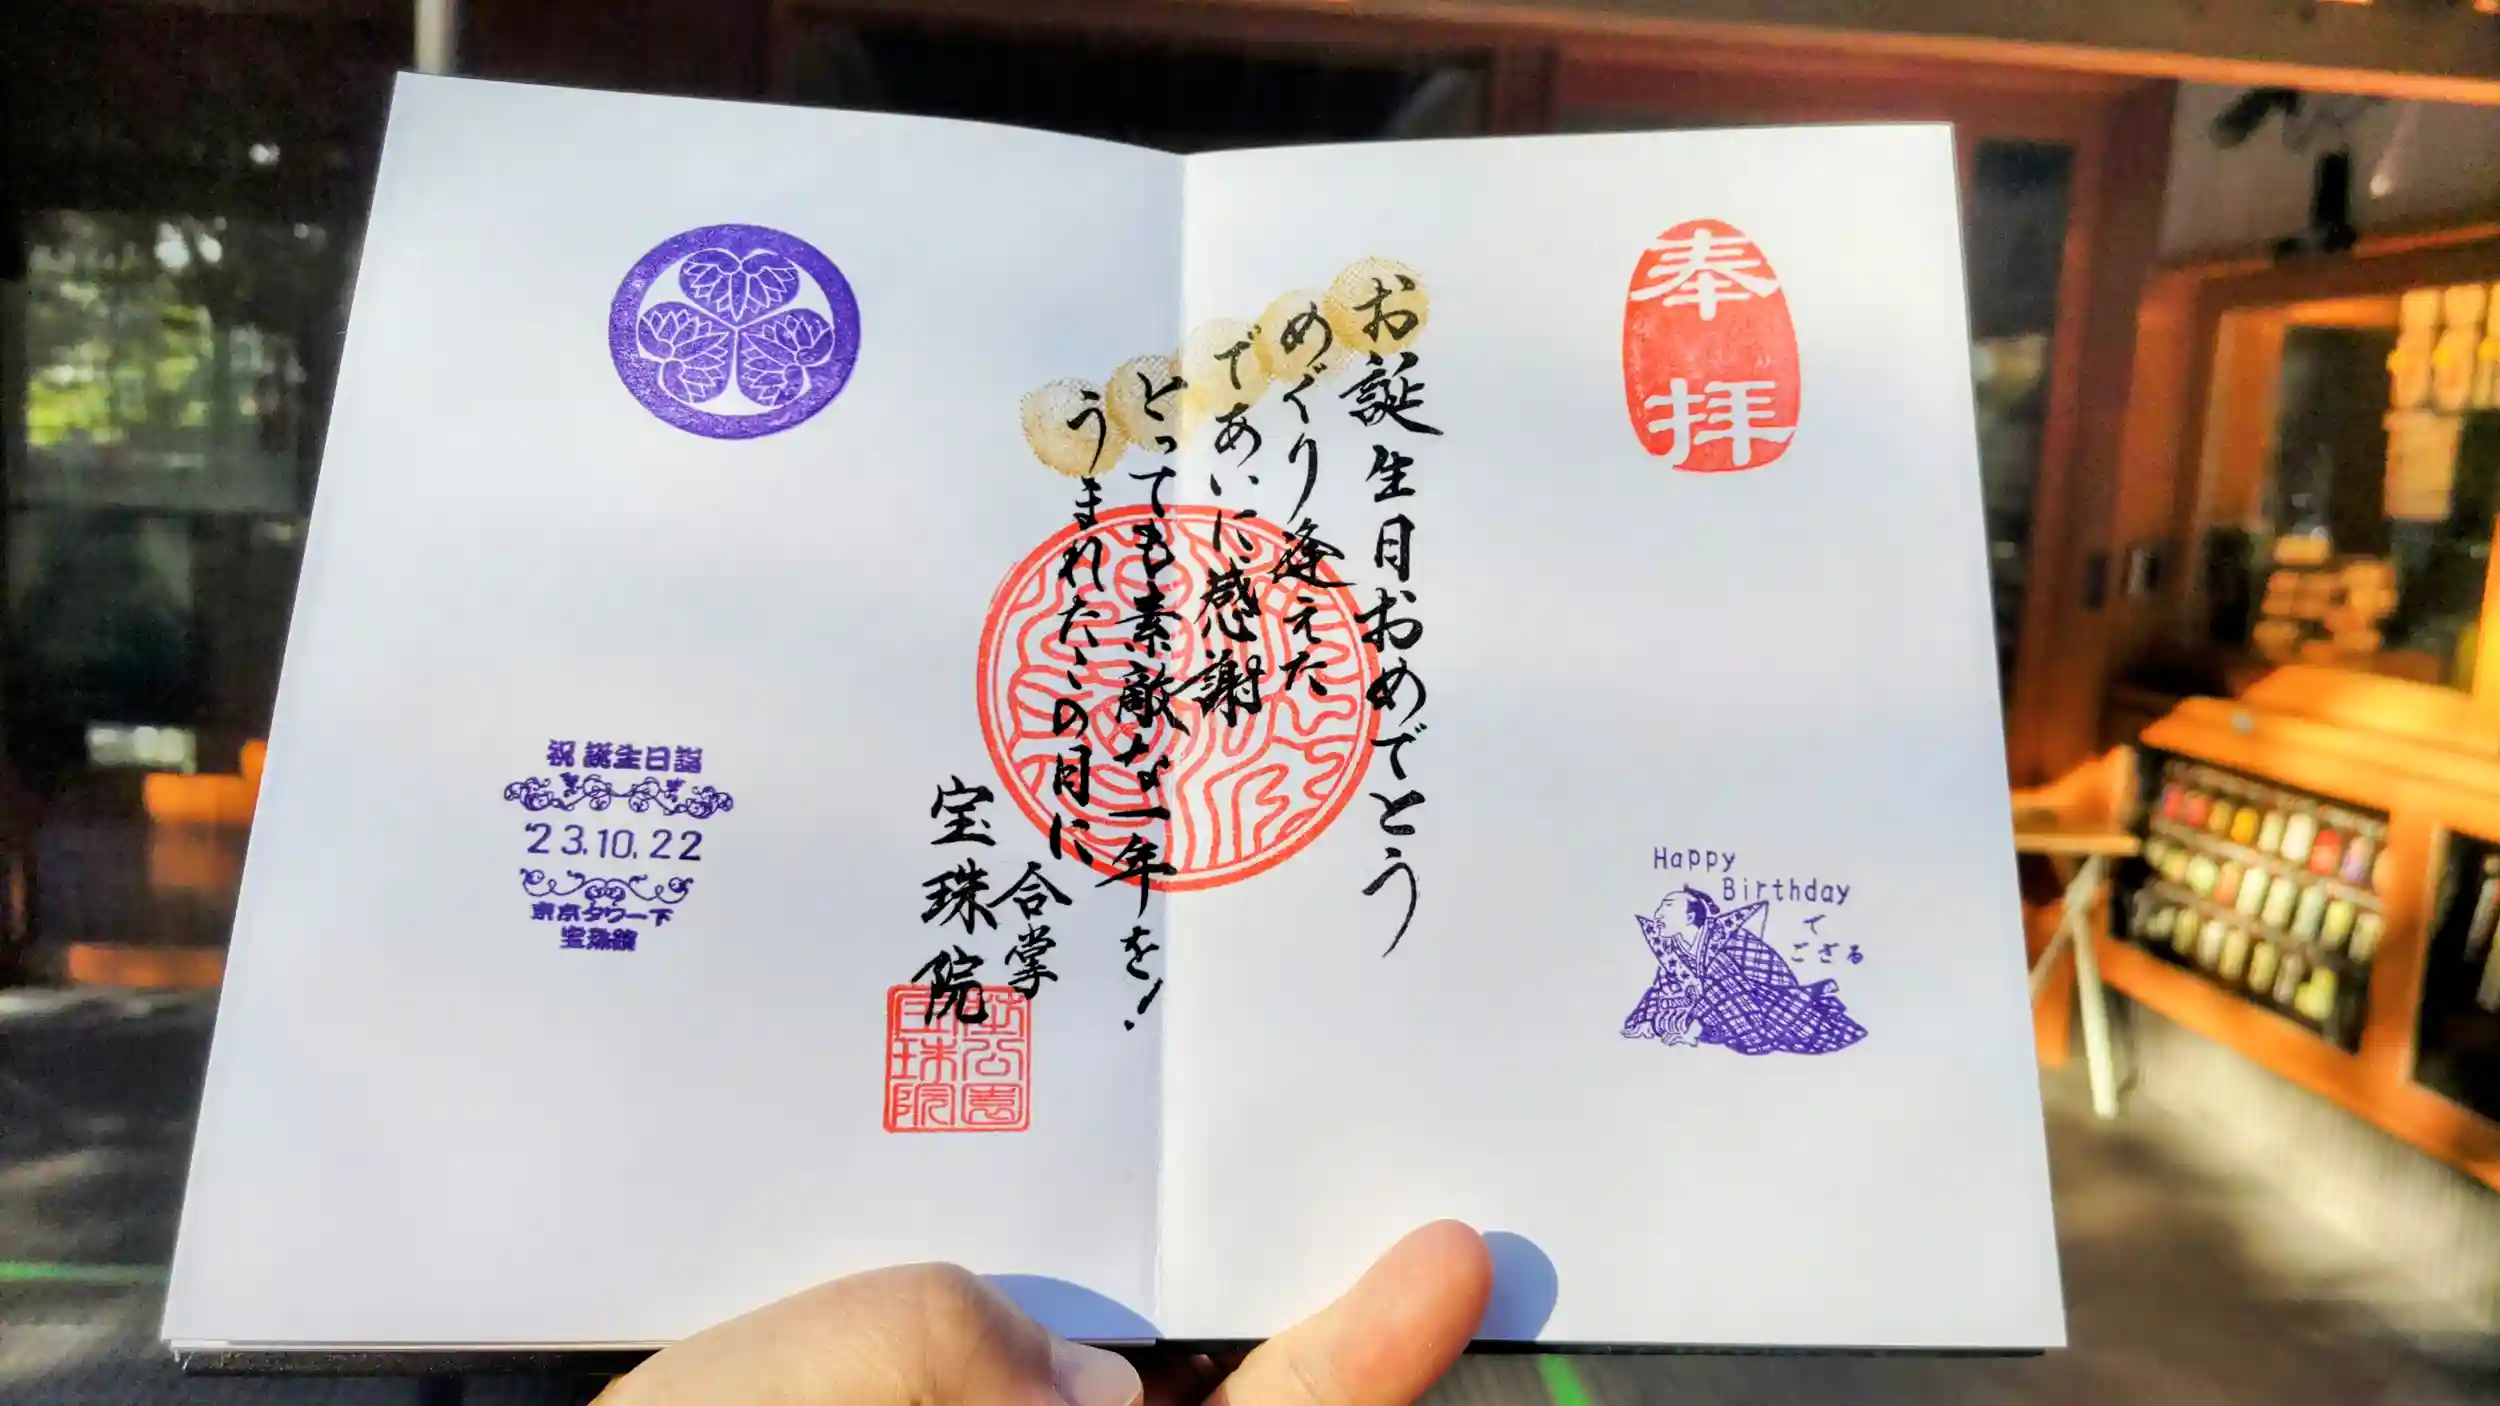 奉拝
Happy
Birthday
で
ござる
お誕生月おめでとう
めぐり逢えた
であいに感謝
とっても素敵な一年を!
うまれたこの月に
合掌
宝珠院
芝公園
宝珠院
祝 誕生日詣
'23.10.22
東京タワー下
宝珠院